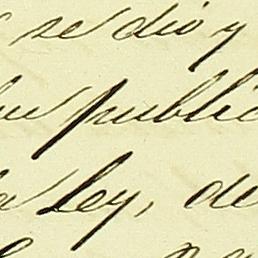 se dio y
su public
la ley, de